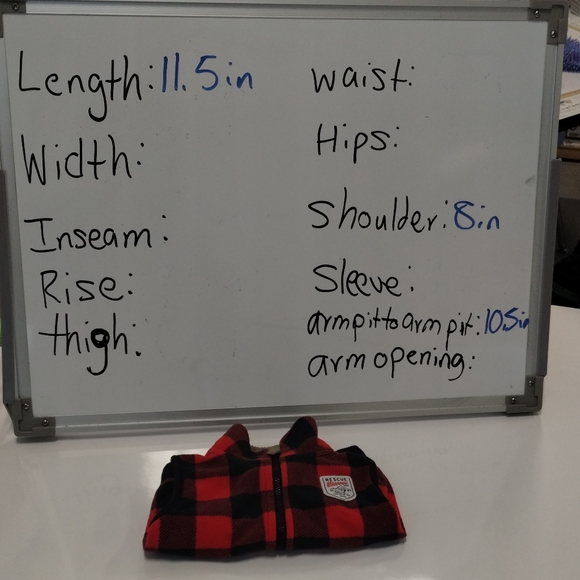 Length: 11.5in
Width:
Inseam:
Rise:
thigh:
waist:
Hips:
Shoulder: 8in
Sleeve:
armpit to arm pit: 10.5in
arm opening:
RESCUE